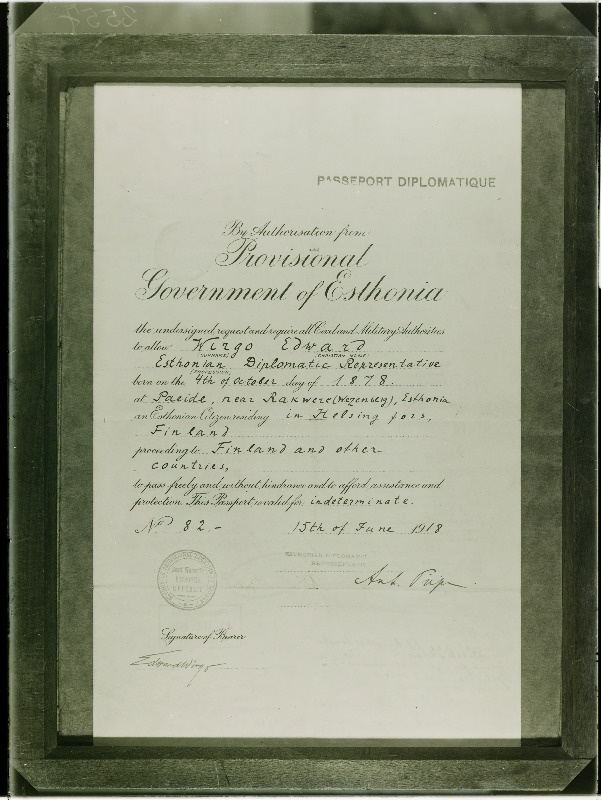 2557
PASSEPORT DIPLOMATIQUE
By Authorisation from
Provisional
Government of Esthonia
the undersigned request and require all Civil and Military Authorities
to allow Wirgo Edward
(SURNAME) (CHRISTIAN NAME)
Esthonian Diplomatic Representative
(PROFESSION)
born on the 4th of October day of 1878.
at Paeide, near Rakwere (Wezenberg), Esthonia
an Esthonian Citizen residing in Helsingfors,
Finland
proceeding to Finland and other
countries,
to pass freely and without hindrance and to afford assistance and
protection. This Passport is valid for indeterminate.
No 82.- 15th of June 1918
ESTHONIAN DIPLOMATIC
REPRESENTATIVE
Ant. Piip
Signature of Bearer
Edward Wirgo